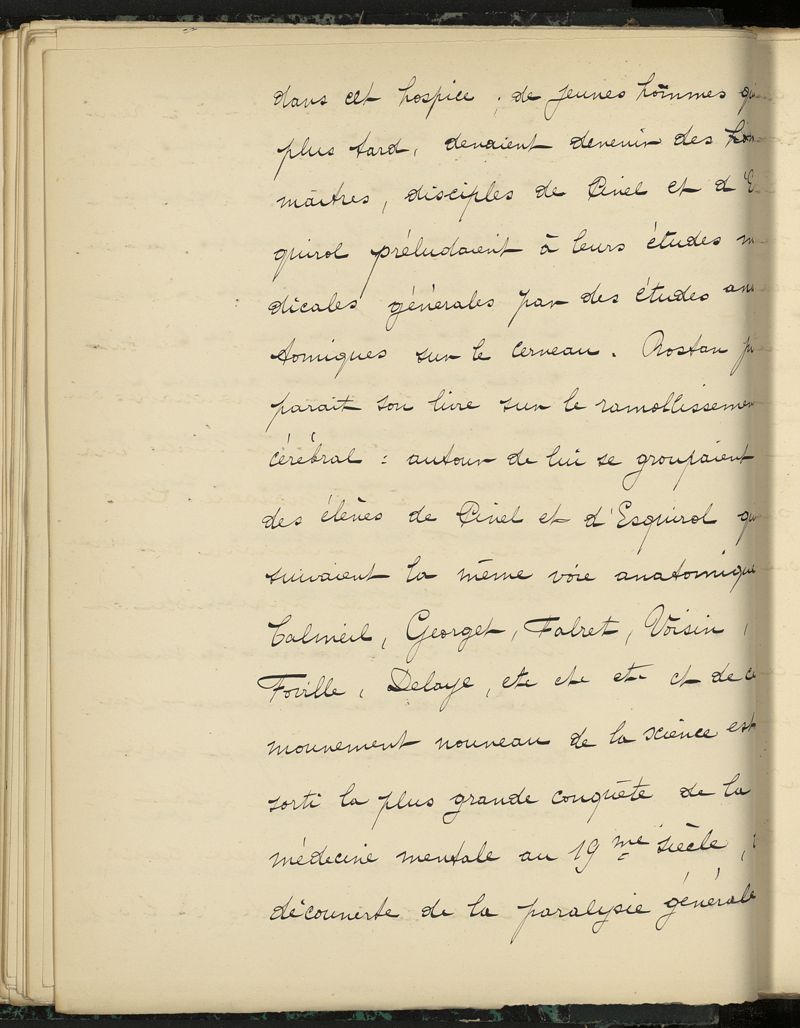 dans cet hospice ; de jeunes hommes
plus tard, devaient devenir des
maîtres, disciples de Pinel et d'E
quirol préludaient à leurs études m
dicales générales par des études ana
tomiques sur le cerveau. Rostan
parait son livre sur le ramollissemen
cérébral : autour de lui se groupaient
des élèves de Pinel et d'Esquirol qu
suivaient la même voie anatomique
Calmeil, Georget, Falret, Voisin,
Foville, Delaye, etc etc etc et de ce
mouvement nouveau de la science est
sorti la plus grande conquête de la
médecine mentale au 19me siècle,
découverte de la paralysie générale